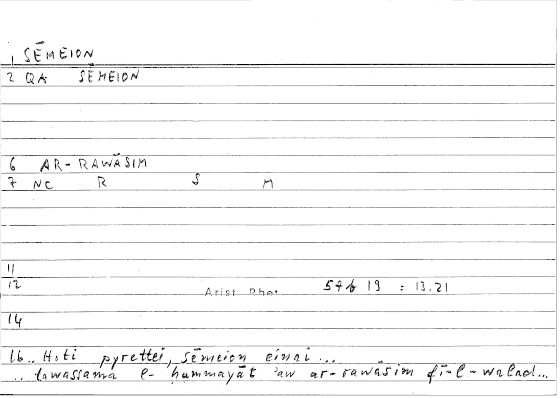 1 SĒMEION
2 QA SĒMEION
6 AR-RAWĀSIM
7 NC R S M
11
12 Arist Rhet 13.21
14
16.. Hoti pyrettei, sēmeion einai...
.. tawassama l- ḥummayāt 'aw ar-rawāsim fī-l-walad...